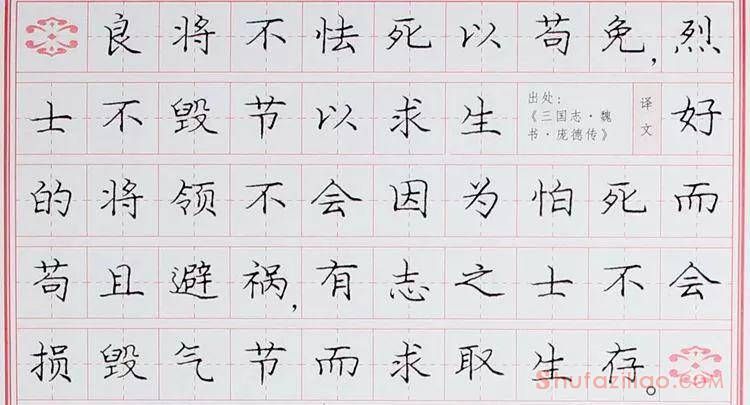 良将不怯死以苟免,烈
士不毁节以求生 出处:《三国志·魏书·庞德传》 译文 好
的将领不会因为怕死而
苟且避祸,有志之士不会
损毁气节而求取生存。
Shufaziliao.com